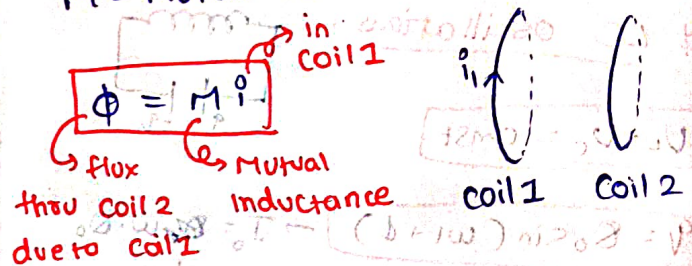 in
coil 1
Φ = M i
flux
thru coil 2
due to coil 1
Mutual
Inductance
i₁
coil 1
coil 2